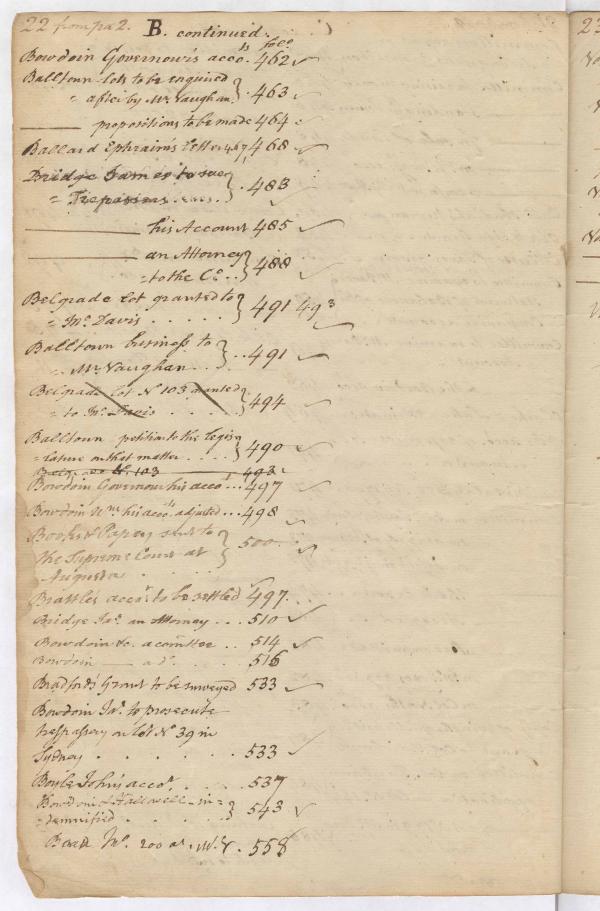 22 from pa 2. B. continued.
fol.o
Bowdoin Governour's acco.ts 462
Balltown lots to be enquired
" after by Mr Vaughan } . 463
—— propositions to be made 464
Ballard Ephraim's Letter 467, 468
Bridge James to sue
" Trespassers } . 483
—— his Account 485
—— an Attorney
" to the Co. . . } 488
Belgrade Lot granted to
" Jno. Davis . . . . . } 491 493
Balltown business to
" Mr. Vaughan . . } . . 491
Belgrade Lot No 103 granted
" to Jno. Davis . . . . } 494
Balltown petition to the legis
= lature on that matter . . . . } 490
Belgrade No. 103 —— 493
Bowdoin Governour his acco.t . . . 497
Bowdoin his acco.ts adjusted . . . 498
Books & Papers sent to
the Supreme Court at } 500
Augusta . . . .
Brattle's acco.ts to be settled 497.
Bridge Jas. an Attorney . . . 510
Bowdoin &c. a comttee . . 514
Bowdoin —— a do. . . 516
Bradford's Grant to be surveyed 533
Bowdoin Jas. to prosecute
trespassers on lot No 39 in
Sydney . . . . . . . 533
Boyle John's acco.t . . . . 537
Bowdoin & Hallowell - in =
= demnified . . . . . } 543
Jno. 200 as. 558
23